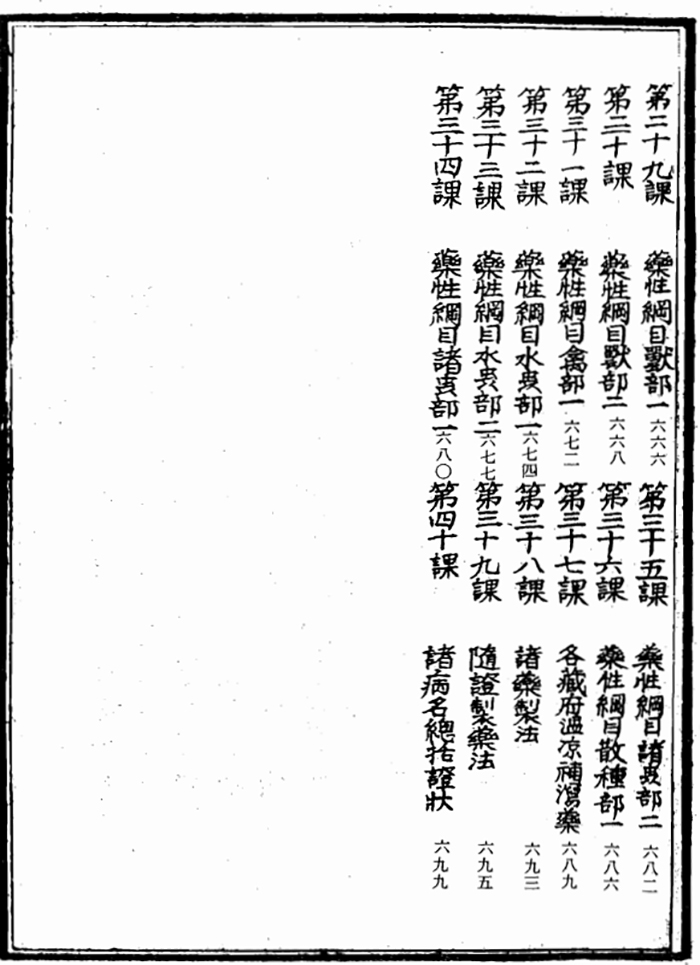 第二十九課 藥性綱目獸部一 六六六
第二十課 藥性綱目獸部二 六六八
第三十一課 藥性綱目禽部一 六七二
第三十二課 藥性綱目水虫部一 六七四
第三十三課 藥性綱目水虫部二 六七七
第三十四課 藥性綱目諸虫部一 六八〇
第三十五課 藥性綱目諸虫部二 六八二
第三十六課 藥性綱目散種部一 六八六
第三十七課 各藏府溫凉補瀉藥 六八九
第三十八課 諸藥製法 六九三
第三十九課 隨證製藥法 六九五
第四十課 諸病名總括證狀 六九九